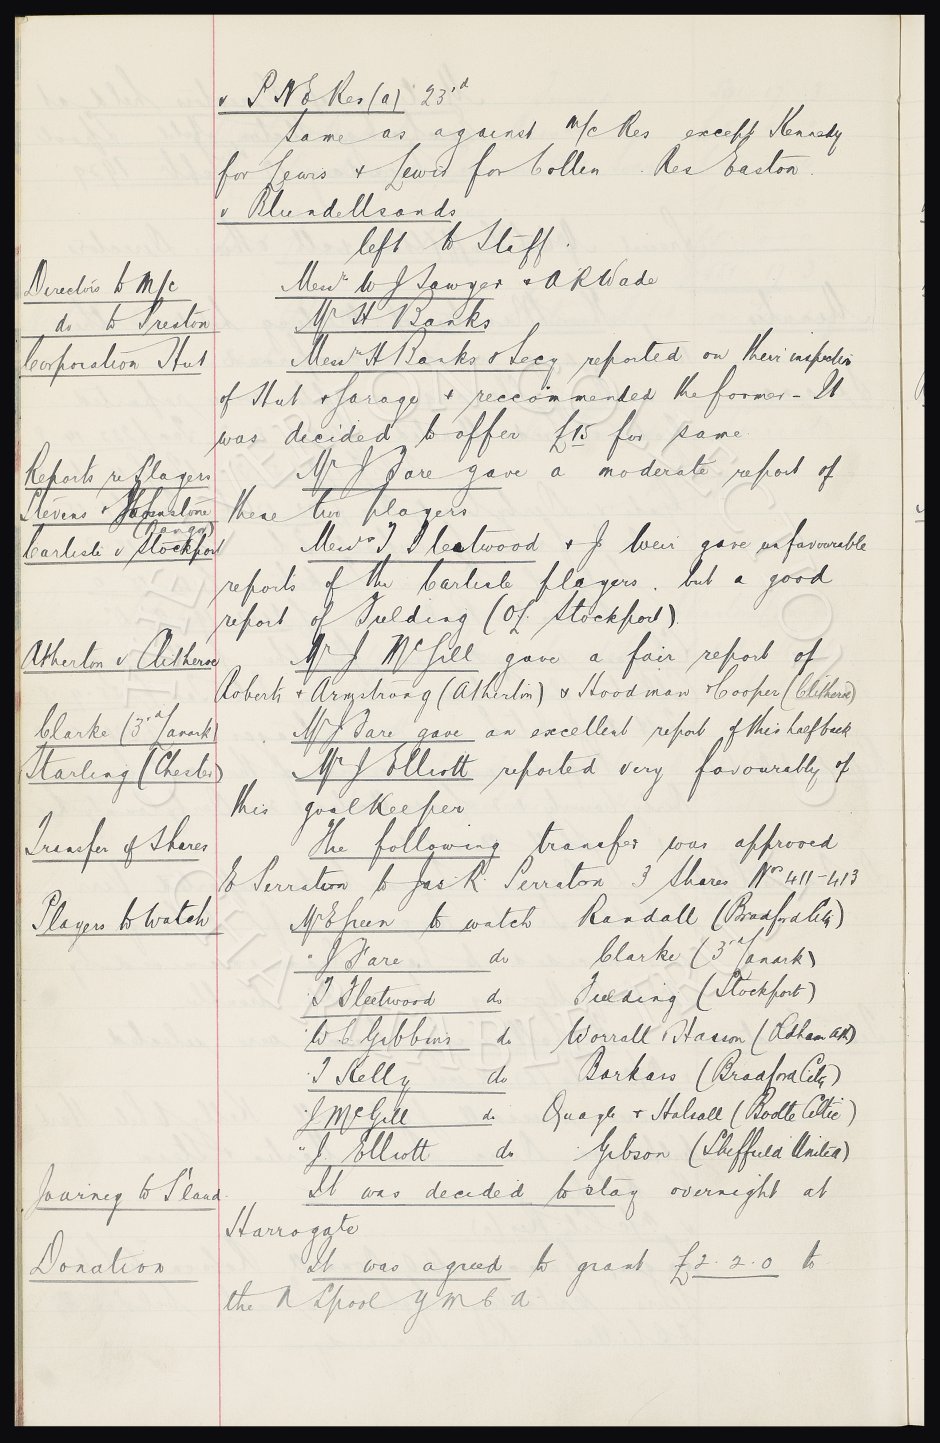 v P N E Res (a) 23rd
Same as against M/c Res except Kennedy
for Lewis & Lewis for Cotten. Res Easton.
v Blundellsands
left to Staff.
Directors to M/c Messrs W J Sawyer & A R Wade
do to Preston Mr H Banks
Corporation Hut Messrs H Banks & Secy reported on their inspection
of Hut & Garage & reccommended the former - It
was decided to offer £15 for same.
Reports re Players Mr J Fare gave a moderate report of
Stevens & Johnstone these two players
(Bangor)
Carlisle v Stockport Messrs T Fleetwood & J Weir gave unfavourable
reports of the Carlisle players, but a good
report of Fielding (of Stockport).
Atherton v Clitheroe Mr J McGill gave a fair report of
Roberts & Armstrong (Atherton) & Hoodman & Cooper (Clitheroe)
Clarke (3rd Lanark) Mr J Fare gave an excellent report of this half back
Starling (Chester) Mr J Elliott reported very favourably of
this goalkeeper
Transfer of Shares The following transfer was approved
E Serraton to Jas. R. Serraton 3 Shares Nos 411-413
Players to Watch Mr E Green to watch Randall (Bradford City)
" J Fare do Clarke (3rd Lanark)
" T Fleetwood do Fielding (Stockport)
" W C Gibbins do Worrall & Hasson (Oldham Ath)
" T Kelly do Barkas (Bradford City)
" J McGill do Quayle & Halsall (Bootle Celtic)
" J. Elliott do Gibson (Sheffield United)
Journey to S'land. It was decided to stay overnight at
Harrogate
Donation It was agreed to grant £2.2.0 to
the A L'pool Y M C A.